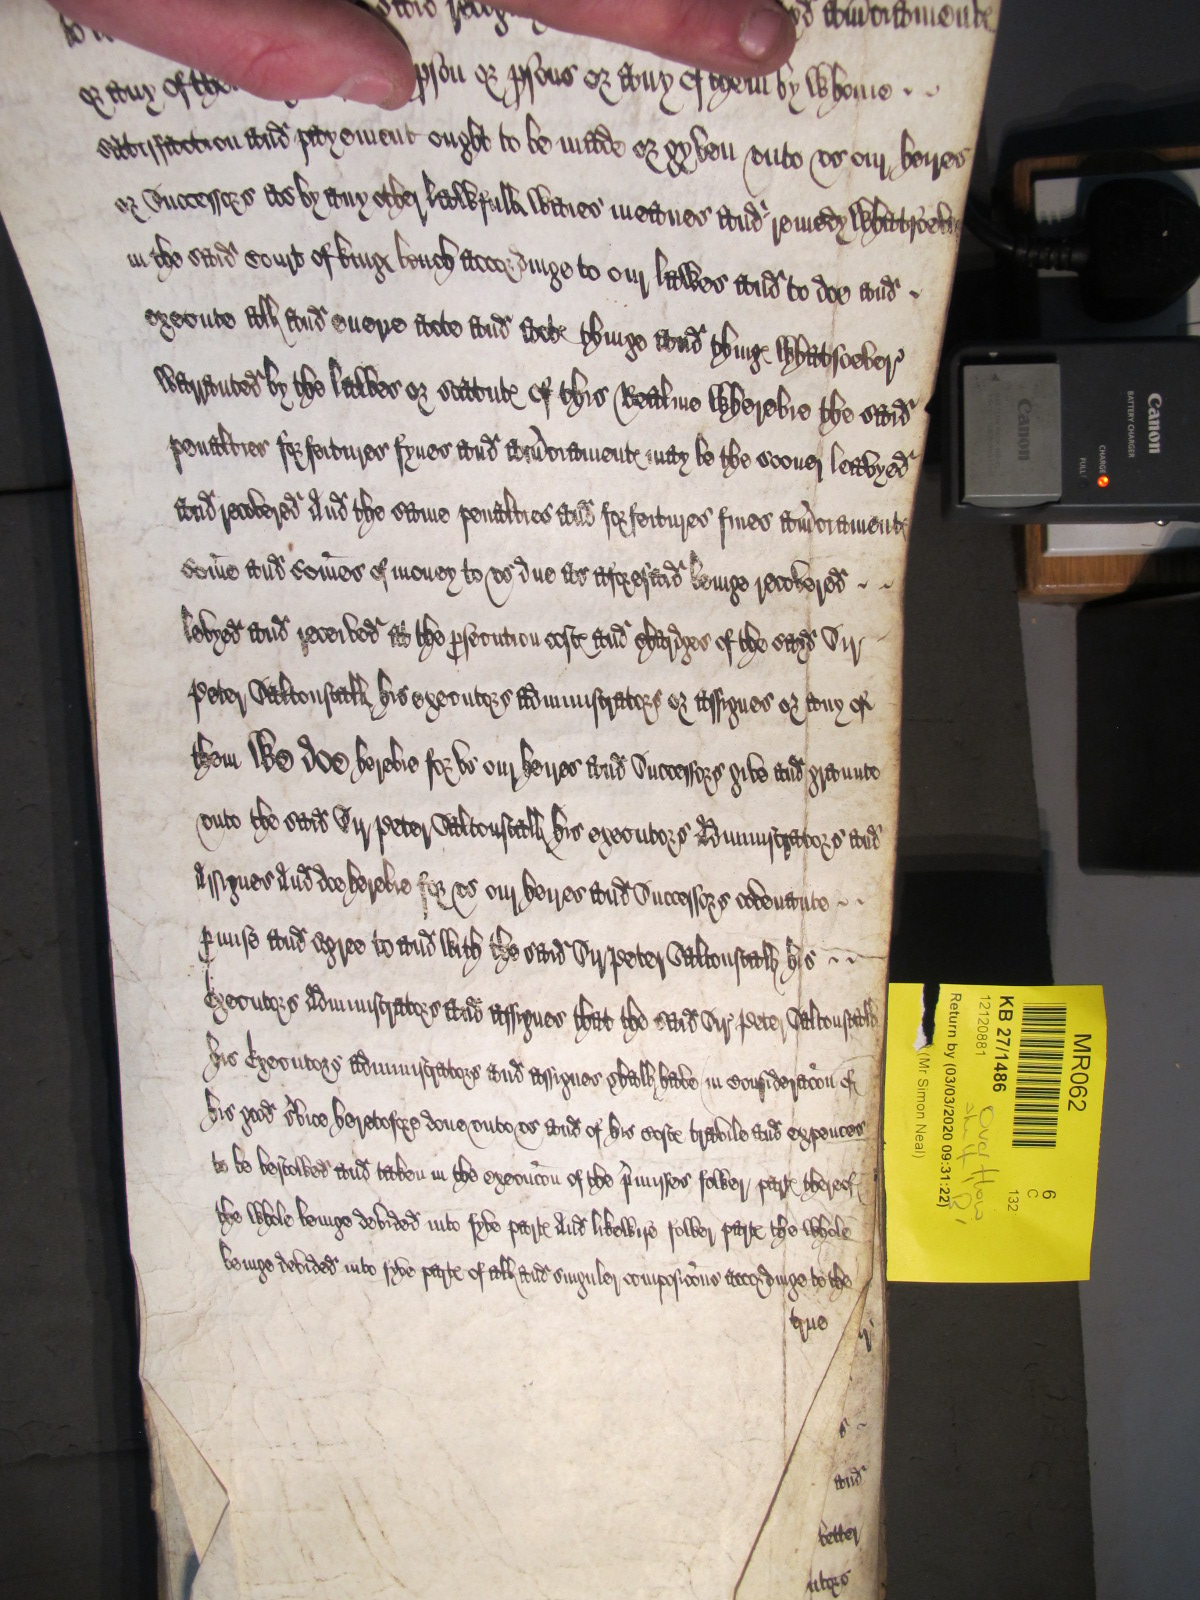 said amerciamente
or any of them pson or psons or any of them by whome
satisfaction and payement ought to be made or gyven vnto vs our heires
or Successors as by any other lawfull waies meanes and remedy whatsoever
in the said Court of kinge bench accordinge to our lawes and to doe and
execute all and euere acte and acte thinge and thinge whatsoever
warranted by the lawes or statute of this Realme wherebie the said
penalties forfeitures fynes and amerciamente may be the sooner leavyed
and recovered And the same penalties and forfeitures fines amerciamente
some and somes of money to vs due as aforesaid beinge recovered
levyed and received at the psecution coste and chardges of the sayd Sir
Peter Saltonstall his executors administrators or assignes or any of
them We doe herebie for vs our heires and Successors give and graunte
vnto the said Sir Peter Saltonstall his executors Administrators and
Assignes And doe herebie for vs our heires and Successors covenante
pmise and agree to and with the said Sir Peter Saltonstall his
Executors Administrators and assignes that the said Sir Peter Saltonstall
his Executors administrators and assignes shall have in consideracon of
his good service heretofore done vnto vs and of his coste travile and expences
to be bestowed and taken in the execucon of the pmisses fower parte thereof
the whole beinge devided into fyve parte And likewise fower parte the whole
beinge devided into fyve parte of all and singuler composicons accordinge to the
true
and
better
utors
Canon
BATTERY CHARGER
CHARGE
FULL
Canon
MR062
KB 27/1486
12120881
Return by (03/03/2020 09:31:22)
(Mr Simon Neal)
6
C
132